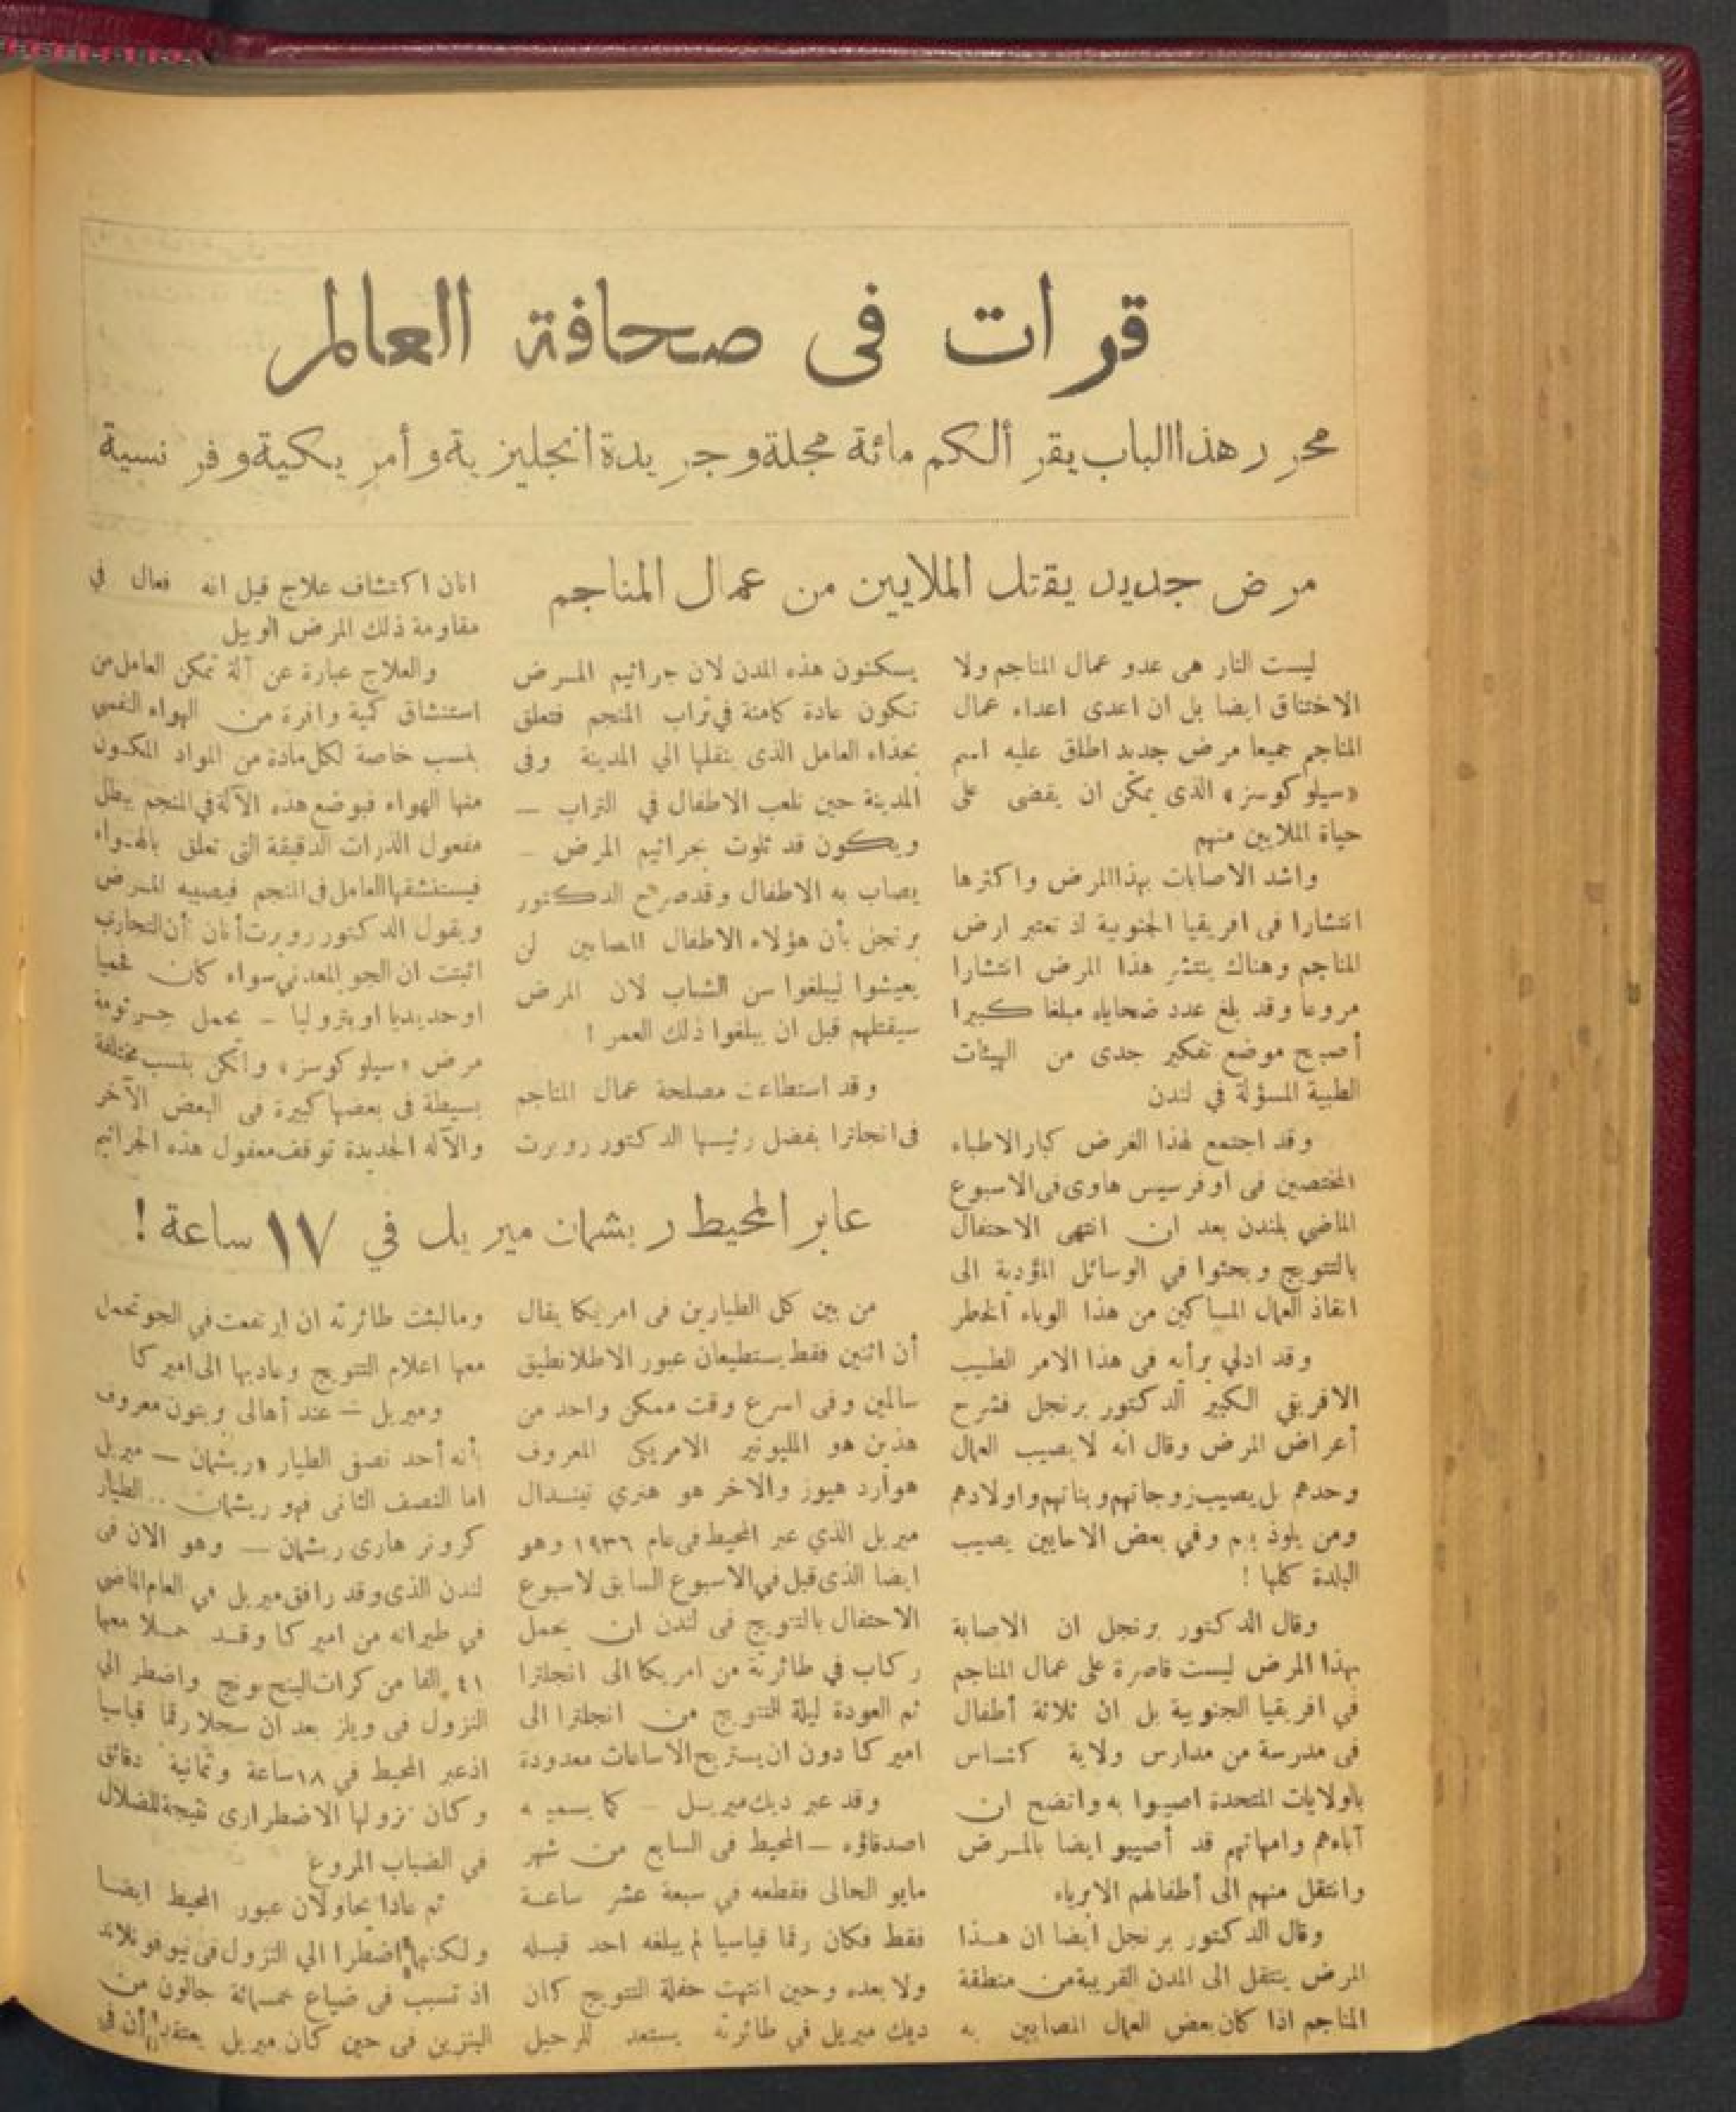 قرات فى صحافة العالم
محرر هذا الباب يقرأ لكم مائة مجلة وجريدة انجليزية وأمريكية وفرنسية
مرض جديد يقتل الملايين من عمال المناجم
ليست النار هى عدو عمال المناجم ولا
الاختناق ايضا بل ان اعدى اعداء عمال
المناجم جميعا مرض جديد اطلق عليه اسم
«سيلوكوسز» الذى يمكن ان يقضى على
حياة الملايين منهم
واشد الاصابات بهذا المرض واكثرها
انتشارا فى افريقيا الجنوبية اذ تعتبر ارض
المناجم وهناك ينتشر هذا المرض انتشارا
مروعا وقد بلغ عدد ضحاياه مبلغا كبيرا
أصبح موضع تفكير جدى من الهيئات
الطبية المسؤلة في لندن
وقد اجتمع لهذا الغرض كبار الاطباء
المختصين فى اوفرسيس هاوى فى الاسبوع
الماضي بلندن بعد ان انتهى الاحتفال
بالتتويج وبحثوا في الوسائل المؤدية الى
انقاذ العمال المساكين من هذا الوباء الخطر
وقد ادلي برأيه فى هذا الامر الطبيب
الافريقي الكبير الدكتور برنجل فشرح
أعراض المرض وقال انه لا يصيب العمال
وحدهم بل يصيب زوجاتهم وبناتهم واولادهم
ومن يلوذ بهم وفي بعض الاحايين يصيب
البلدة كلها !
وقال الدكتور برنجل ان الاصابة
بهذا المرض ليست قاصرة على عمال المناجم
في افريقيا الجنوبية بل ان ثلاثة أطفال
فى مدرسة من مدارس ولاية كنساس
باولايات المتحدة اصيبوا به واتضح ان
آباءهم وامهاتهم قد أصيبو ايضا بالمرض
وانتقل منهم الى أطفالهم الابرياء
وقال الدكتور برنجل ايضا ان هذا
المرض ينتقل الى المدن القريبة من منطقة
المناجم اذا كان بعض العمال المصابين به
يسكنون هذه المدن لان جراثيم المرض
تكون عادة كامنة في تراب المنجم فتعلق
بحذاء العامل الذى ينقلها الي المدينة وفى
المدينة حين تلعب الاطفال في التراب —
ويكون قد تلوث بجراثيم المرض —
يصاب به الاطفال وقد صرح الدكتور
برنجل بأن هؤلاء الاطفال المصابين لن
يعيشوا ليبلغوا سن الشباب لان المرض
سيقتلهم قبل ان يبلغوا ذلك العمر !
وقد استطاعت مصلحة عمال المناجم
فى انجلترا بفضل رئيسها الدكتور روبرت
انان اكتشاف علاج قيل انه فعال في
مقاومة ذلك المرض الوبيل
والعلاج عبارة عن آلة تمكن العامل من
استنشاق كمية وافرة من الهواء النقي
بنسب خاصة لكل مادة من المواد المكون
منها الهواء فبوضع هذه الآلة في المنجم يبطل
مفعول الذرات الدقيقة التى تعلق بالهواء
فيستنشقها العامل فى المنجم فيصيبه المرض
ويقول الدكتور روبرت أنان أن التجارب
اثبتت ان الجو المعدني سواء كان فحميا
او حديديا او بتروليا — يحمل جرثومة
مرض «سيلوكوسز» ولكن بنسب مختلفة
بسيطة فى بعضها كبيرة فى البعض الآخر
والآله الجديدة توقف مفعول هذه الجراثيم
عابر المحيط ريشمان ميريل في ١٧ ساعة !
من بين كل الطيارين فى امريكا يقال
أن اثنين فقط يستطيعان عبور الاطلانطيق
سالمين وفى اسرع وقت ممكن واحد من
هذين هو المليونير الامريكى المعروف
هوارد هيوز والاخر هو هنري تيندال
ميريل الذي عبر المحيط فى عام ١٩٣٦ وهو
ايضا الذى قبل في الاسبوع السابق لاسبوع
الاحتفال بالتتويج فى لندن ان يحمل
ركاب في طائرته من امريكا الى انجلترا
ثم العودة ليلة التتويج من انجلترا الى
اميركا دون ان يستريح الا ساعات معدودة
وقد عبر ديك ميريل — كما يسميه
اصدقاؤه — المحيط فى السابع من شهر
مايو الحالى فقطعه في سبعة عشر ساعة
فقط فكان رقما قياسيا لم يبلغه احد قبله
ولا بعده وحين انتهت حفلة التتويج كان
ديك ميريل في طائرته يستعد للرحيل
وما لبثت طائرته ان ارتفعت في الجو تحمل
معها اعلام التتويج وعاد بها الى اميركا
وميريل — عند أهالى معروف
بأنه أحد نصفى الطيار «ريشمان — ميريل
اما النصف الثانى فهو ريشمان .. الطيار
كرونر هارى ريشمان — وهو الان فى
لندن الذى وقد رافق ميريل في العام الماضى
في طيرانه من اميركا وقد حملا معها
٤١ الفا من كرات البنج بونج واضطر الي
النزول فى ويلز بعد ان سجلا رقما قياسيا
اذ عبر المحيط في ١٨ ساعة وثمانية دقائق
وكان نزولها الاضطرارى نتيجة للضلال
في الضباب المروع
ثم عادا يحاولان عبور المحيط ايضا
ولكنهما اضطرا الي النزول فى نيوفونلاند
اذ تسبب فى ضياع خمسمائة جالون من
البنزين فى حين كان ميريل يعتقد أن فى